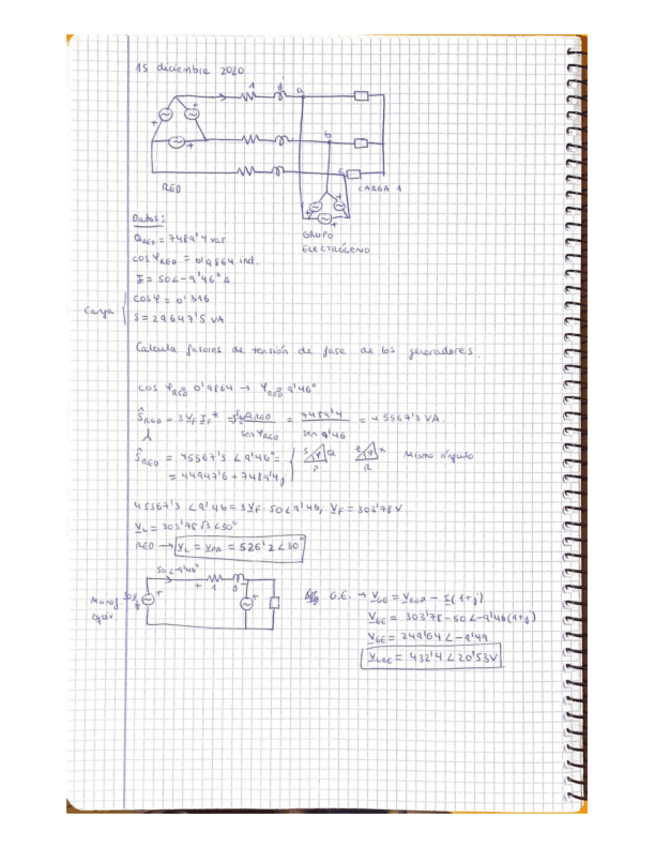 15 diciembre 2020
1 j a
b
c
RED CARGA 1
GRUPO
ELECTRÓGENO
Datos:
Q RED = 7489'4 var
cos φ RED = 0'9864 ind.
I = 50∠-9'46° A
Carga cos φ = 0'316
S = 29647'5 VA
Calcula fasores de tensión de fase de los generadores.
cos φ RED = 0'9864 → φ RED = 9'46°
S RED = 3 V_F I_F* = Q RED / sen φ RED = 7489'4 / sen 9'46 = 45567'3 VA.
S RED = 45567'3 ∠9'46° = S Q P Z X R Mismo ángulo
= 44947'6 + 7489'4j
45567'3 ∠9'46 = 3V_F · 50∠9'46, V_F = 303'78 V
V_L = 303'78 √3 ∠30°
RED → V_L = = 526'2 ∠30°
50∠-9'46°
Monof. equiv. + 1 j +
G.E. → V_GE = - I(1+j)
V_GE = 303'78 - 50∠-9'46(1+j)
V_GE = 249'64 ∠-9'49
V_LGE = 432'4 ∠20'53V